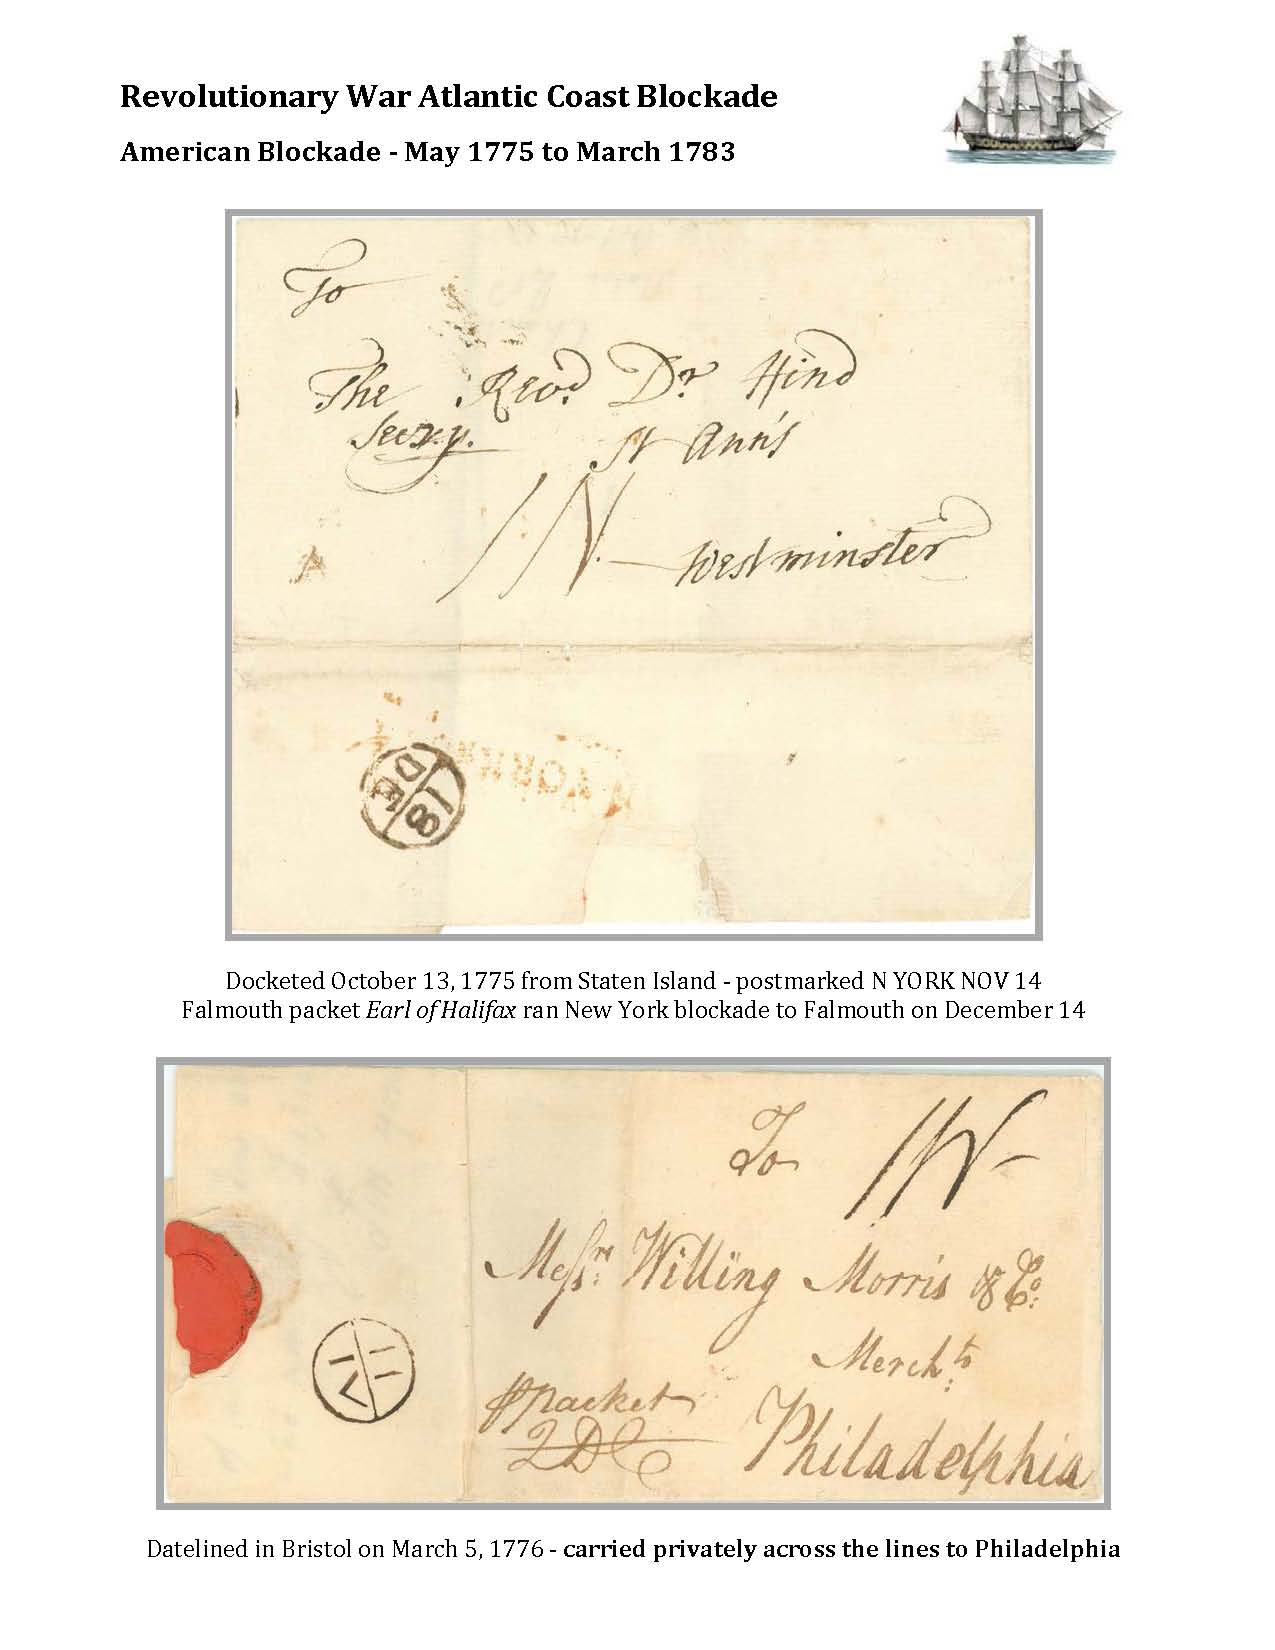 Revolutionary War Atlantic Coast Blockade
American Blockade - May 1775 to March 1783
To
The Revd. Dr Hind
Secry. St Ann's
1N.
Westminster
DE
18
N YORK
Docketed October 13, 1775 from Staten Island - postmarked N YORK NOV 14
Falmouth packet Earl of Halifax ran New York blockade to Falmouth on December 14
To
1N
Messrs: Willing Morris & Co:
Merchts:
⅌ packet
Philadelphia
Datelined in Bristol on March 5, 1776 - carried privately across the lines to Philadelphia